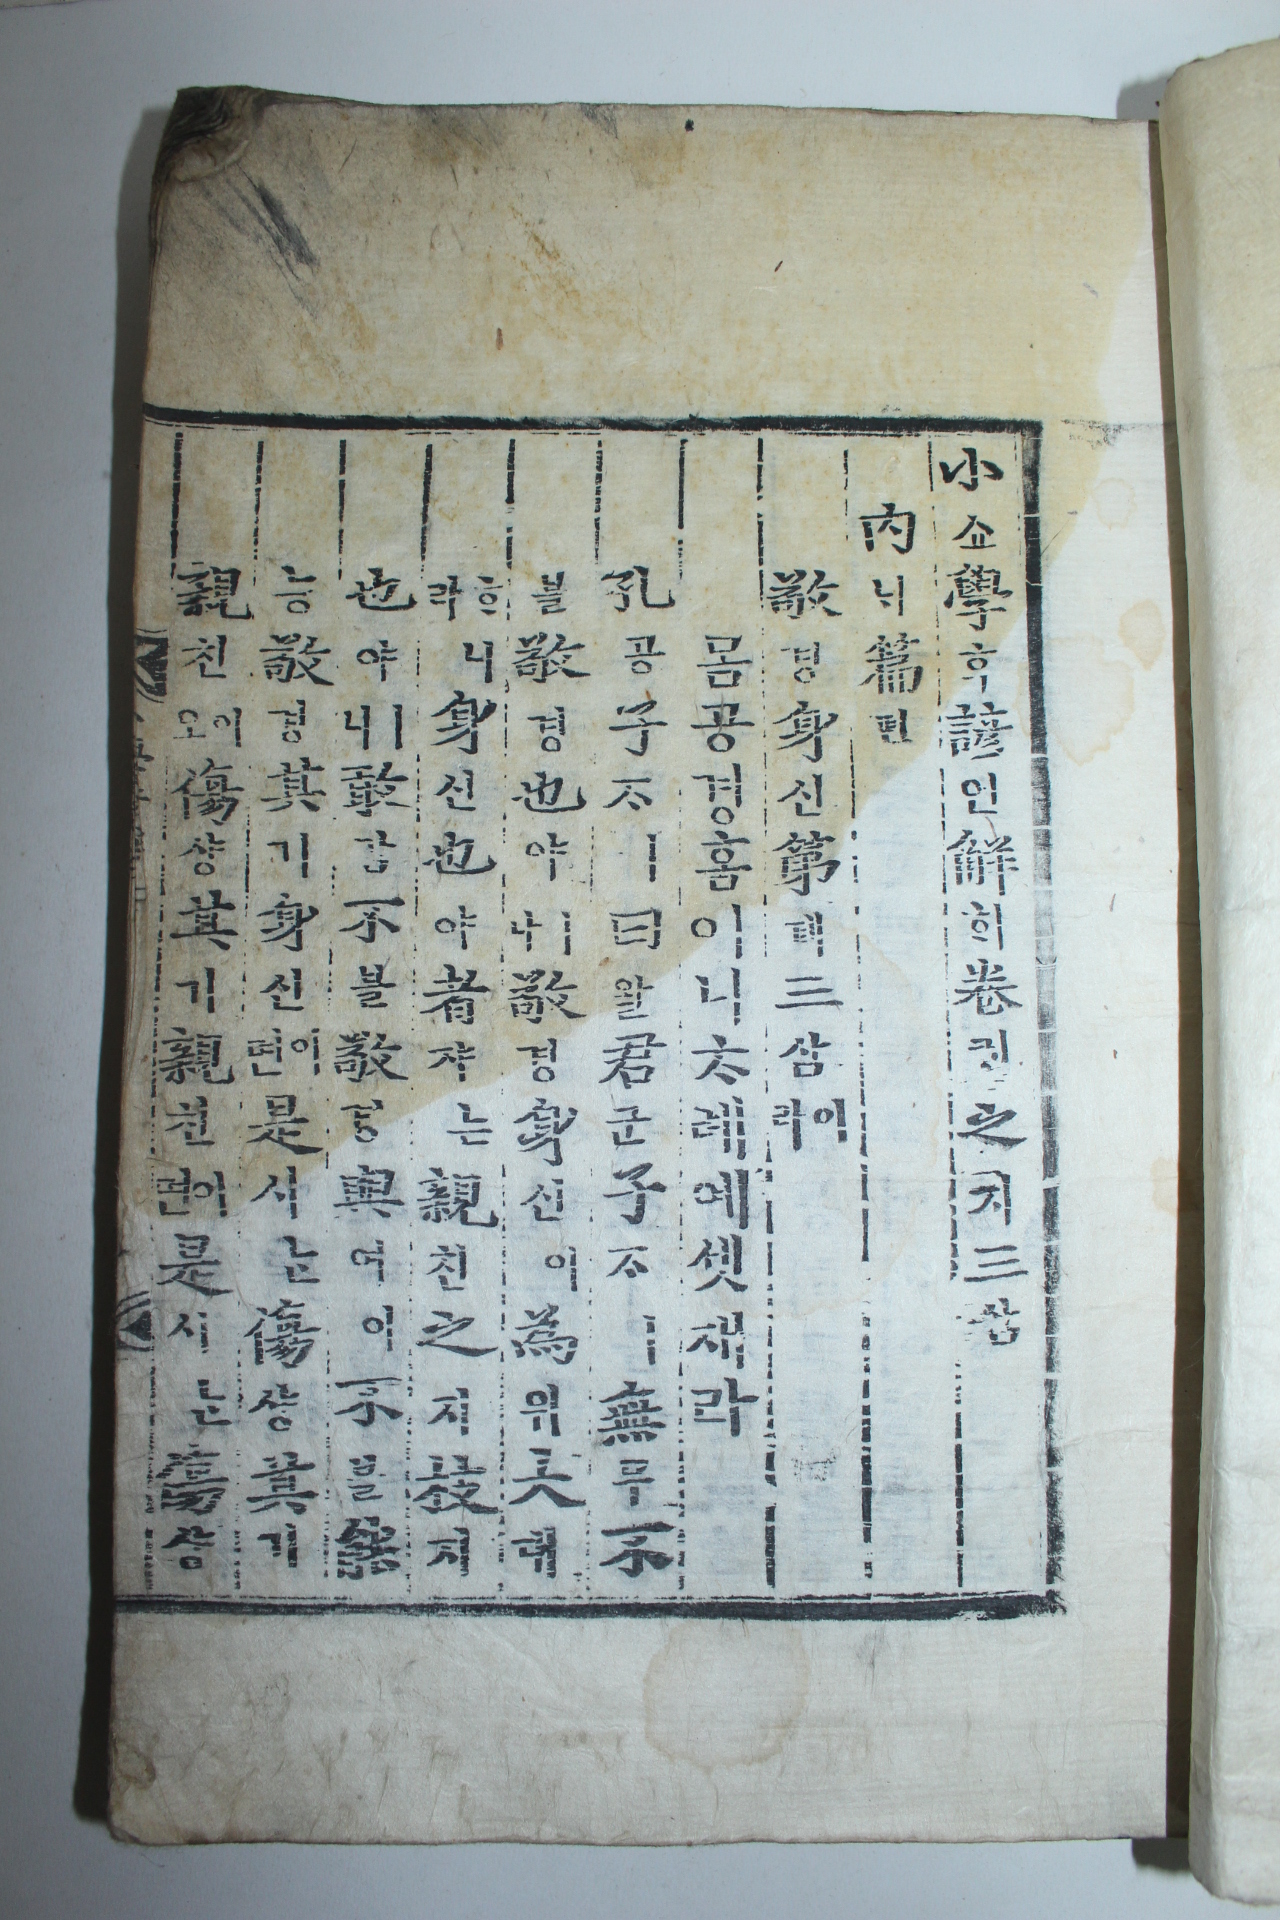 小쇼學ᄒᆞᆨ諺언解ᄒᆡ卷권之지三삼
內ᄂᆡ篇편
敬경身신第뎨三삼이라
몸공경홈이니ᄎᆞ례예셋재라
孔공子ᄌᆞㅣ曰왈君군子ᄌᆞㅣ無무不
블敬경也야ㅣ나敬경身신이為위大대
ᄒᆞ니라身신也야者쟈ᄂᆞᆫ親친之지枝지
也야ㅣ니敢감不블敬경與여아不블能
능敬경其기身신이면是시ᄂᆞᆫ傷상其기
親친이오傷상其기親친이면是시ᄂᆞᆫ傷상